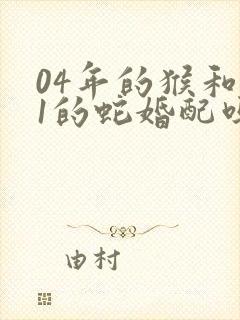 04年的猴和
1的蛇婚配吗
由村